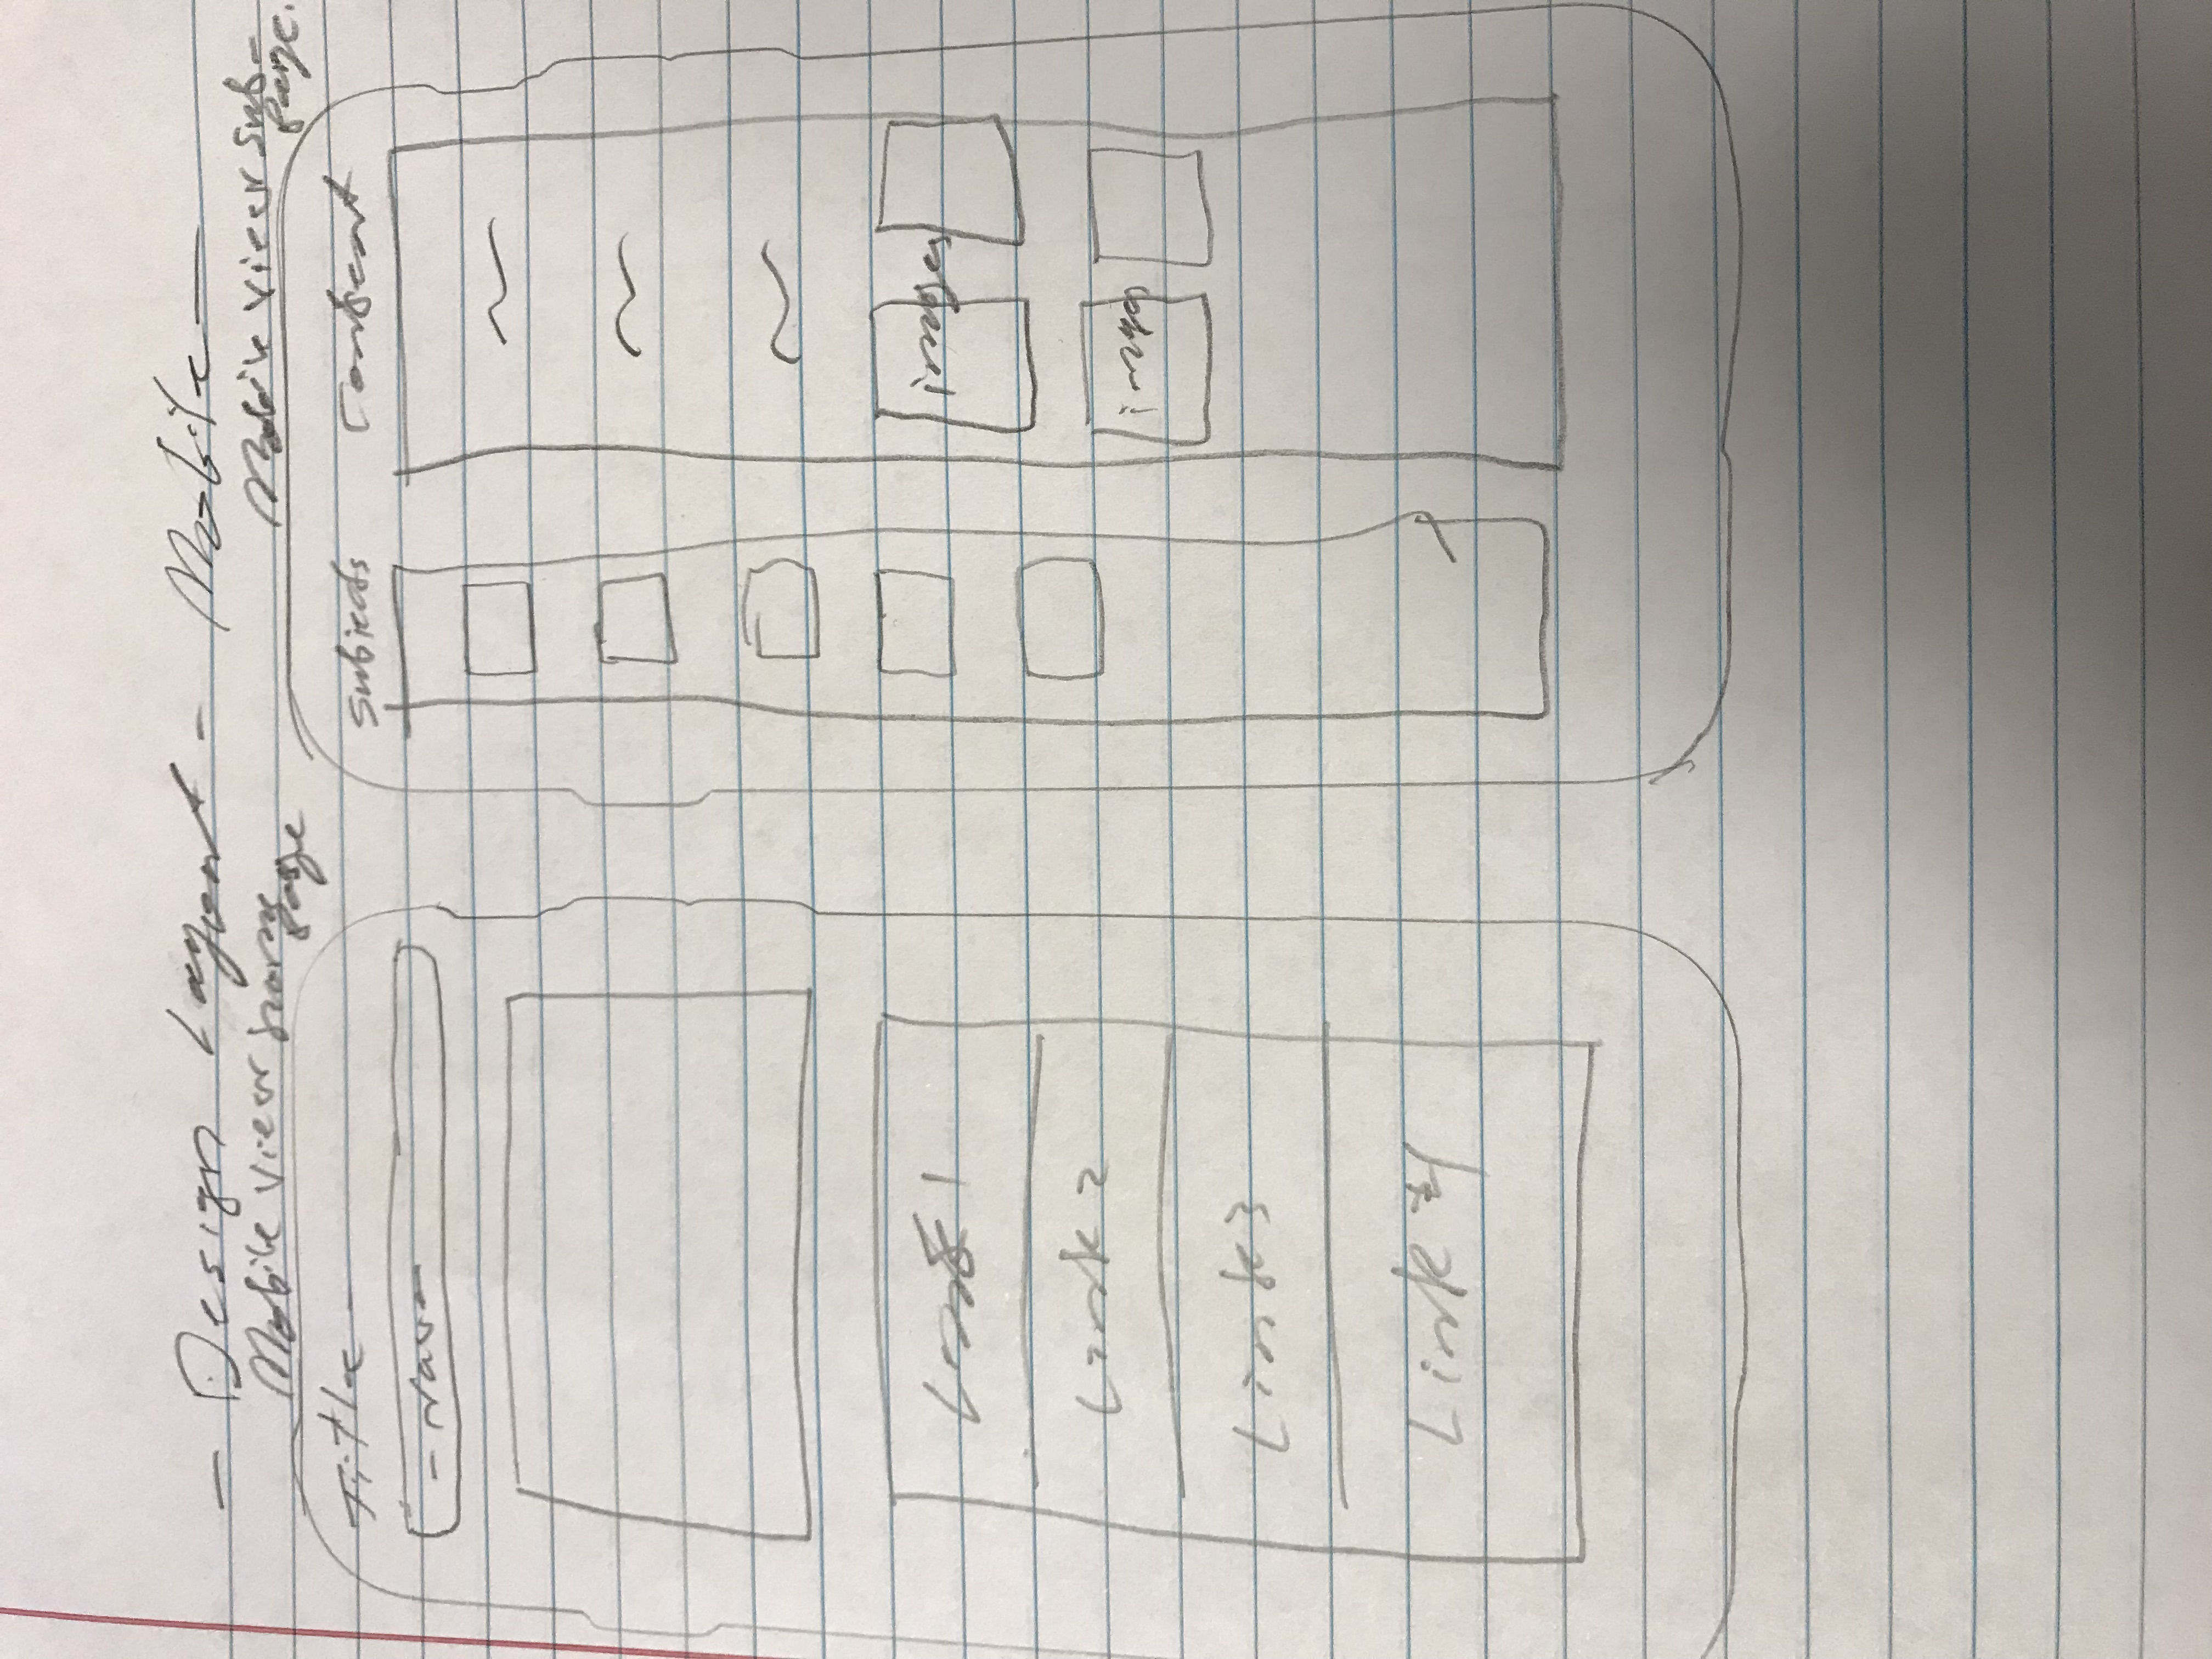 - Design Layout - Mobile -
Mobile View home page
Title
- Nav -
Link 1
Link 2
Link 3
Link 4
Mobile View Sub-page.
Subjects
Content
images
images